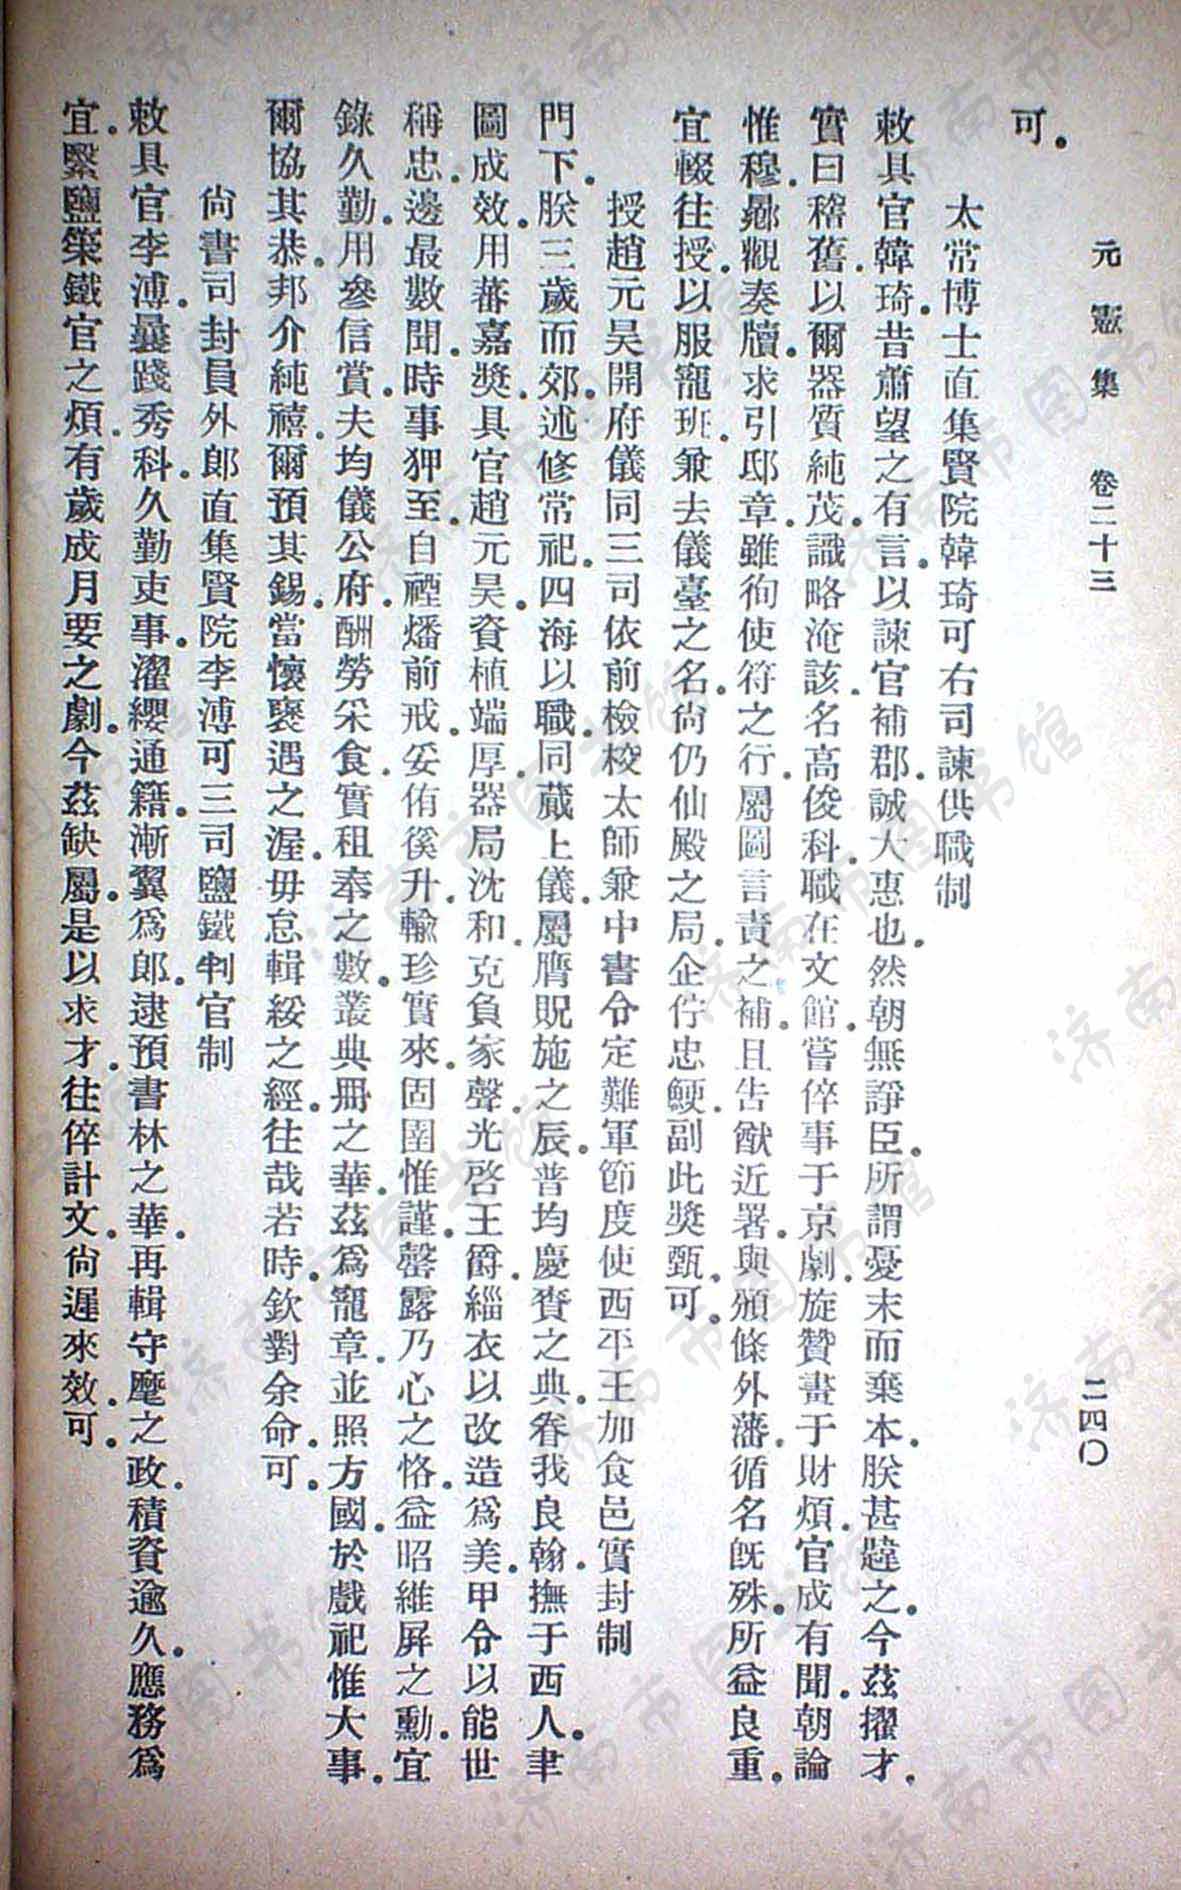 元憲集　卷二十三　二四〇
可。
太常博士直集賢院韓琦可右司諫供職制
敕具官韓琦。昔蕭望之有言。以諫官補郡。誠大惠也。然朝無諍臣。所謂憂末而棄本。朕甚韙之。今茲擢才。
實曰稽舊。以爾器質純茂。識略淹該。名高俊科。職在文館。嘗倅事于京劇。旋贊畫于財煩。官成有聞。朝論
惟穆。曏觀奏牘。求引邸章。雖徇使符之行。屬圖言責之補。且告猷近署。與頒條外藩。循名既殊。所益良重。
宜輟往授。以服寵班。兼去儀臺之名。尚仍仙殿之局。企佇忠鯁。副此獎甄。可。
授趙元昊開府儀同三司依前檢校太師兼中書令定難軍節度使西平王加食邑實封制
門下。朕三歲而郊。述修常祀。四海以職。同蕆上儀。屬膺貺施之辰。普均慶賚之典。眷我良翰。撫于西人。聿
圖成效。用蕃嘉獎。具官趙元昊。資植端厚。器局沈和。克負家聲。光啓王爵。緇衣以改造爲美。甲令以能世
稱忠。邊最數聞。時事狎至。自禋燔前戒。妥侑徯升。輸珍實來。固圉惟謹。罄露乃心之恪。益昭維屏之勳。宜
錄久勤。用參信賞。夫均儀公府。酬勞采食。實租奉之數。叢典冊之華。茲爲寵章。並照方國。於戲祀惟大事。
爾協其恭。邦介純禧。爾預其錫。當懷褒遇之渥。毋怠輯綏之經。往哉若時。欽對余命。可。
尚書司封員外郎直集賢院李溥可三司鹽鐵判官制
敕具官李溥。曩踐秀科。久勤吏事。濯纓通籍。漸翼爲郎。逮預書林之華。再輯守麾之政。積資逾久。應務爲
宜。繄鹽筴鐵官之煩。有歲成月要之劇。今茲缺屬。是以求才。往倅計文。尚遲來效。可。